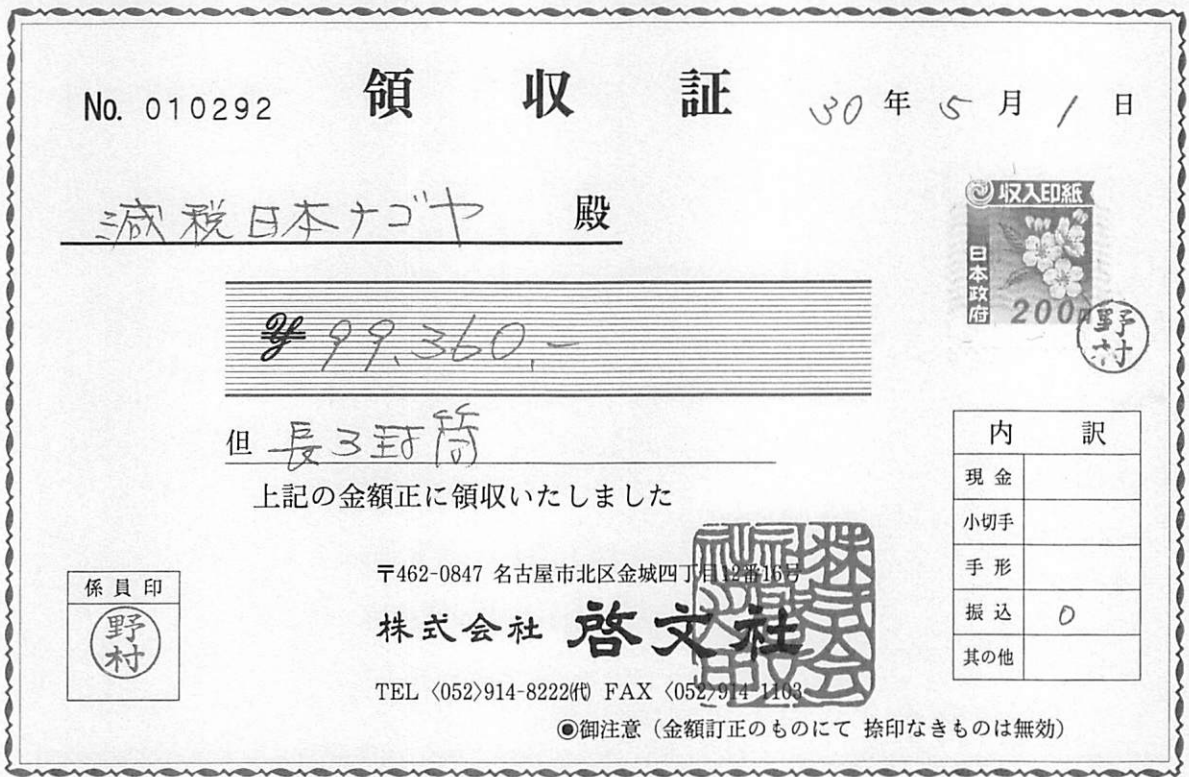 No. 010292 領収証 30年5月1日
減税日本ナゴヤ 殿
収入印紙
日本政府
200円
野村
¥99,360.-
但 長3封筒
上記の金額正に領収いたしました
内訳
現金
小切手
手形
振込 0
其の他
係員印
野村
〒462-0847 名古屋市北区金城四丁目12番16号
株式会社 啓文社
TEL〈052〉914-8222㈹ FAX〈052〉914-1103
◉御注意(金額訂正のものにて 捺印なきものは無効)